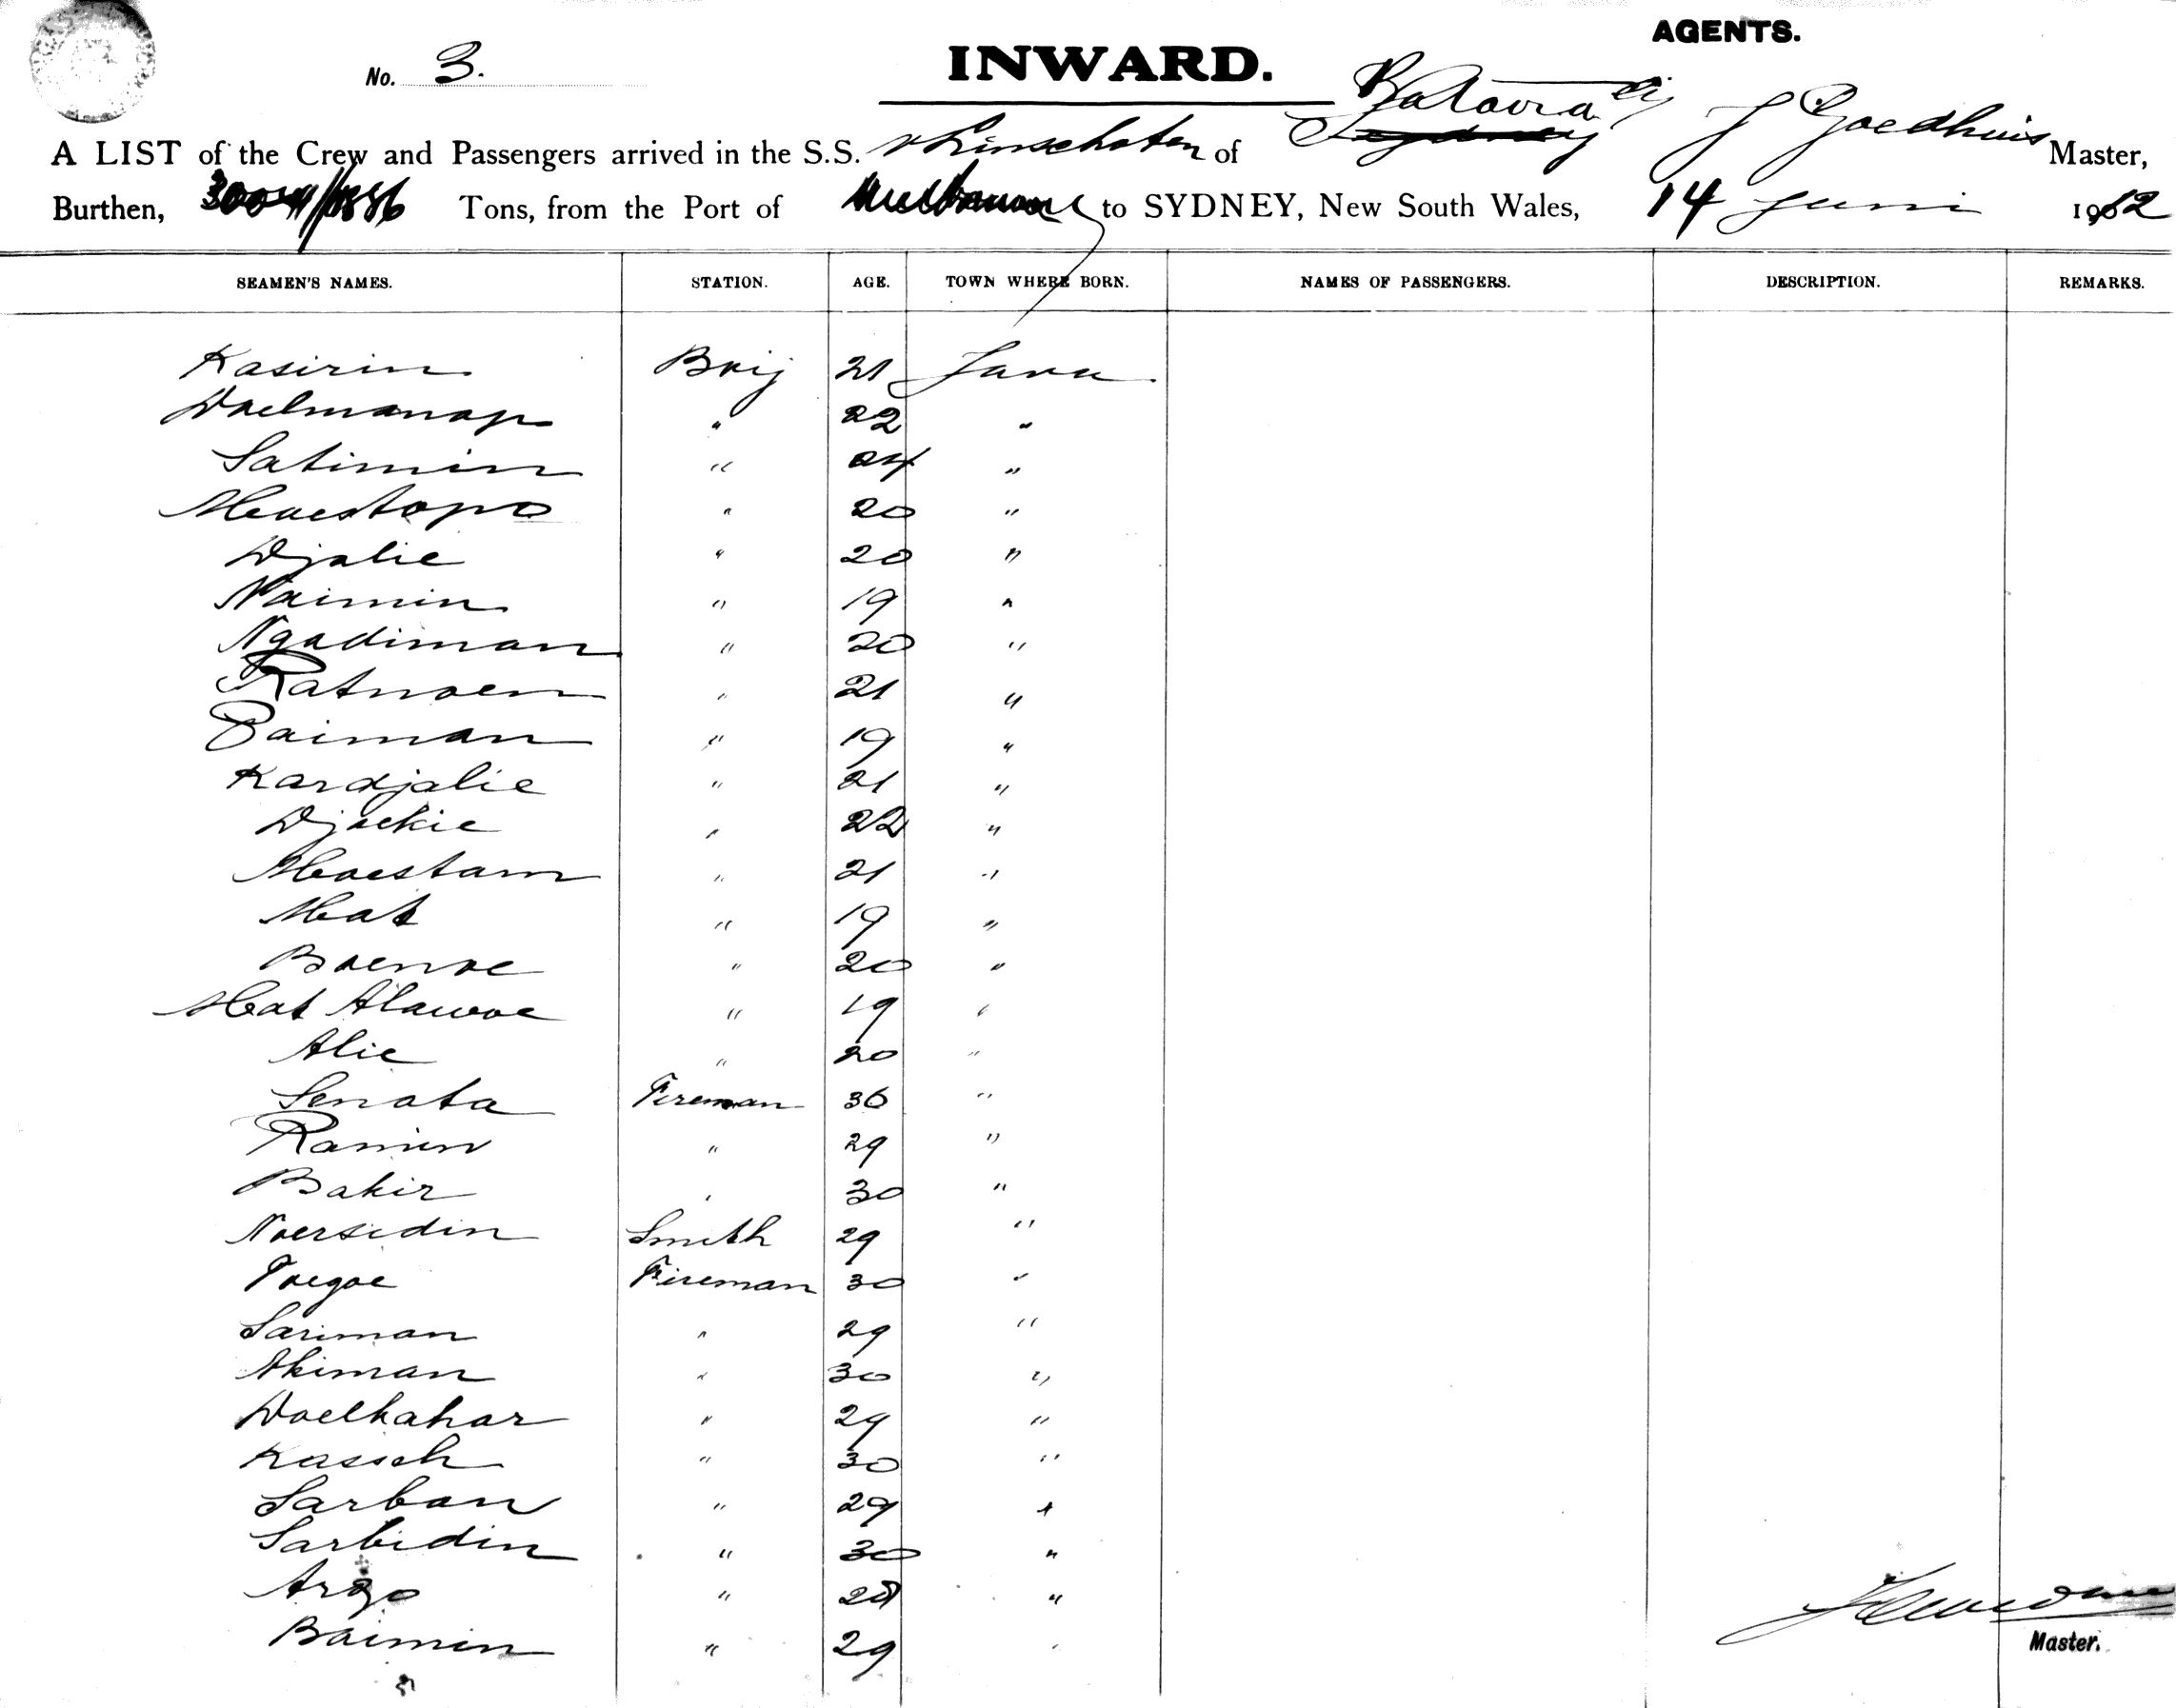 AGENTS.
No. 3.
INWARD.
Batavia
A LIST of the Crew and Passengers arrived in the S.S. v Linschoten of Sydney J Goedhuis Master,
Burthen, Tons, from the Port of Melbourne to SYDNEY, New South Wales, 14 Juni 1912
SEAMEN'S NAMES. STATION. AGE. TOWN WHERE BORN. NAMES OF PASSENGERS. DESCRIPTION. REMARKS.
Kasirin Boij 21 Java
Doelmanap " 22 "
Satimin " 24 "
Moestopo " 20 "
Djalie " 20 "
Naimin " 19 "
Ngadiman " 20 "
Ratnoen " 21 "
Paiman " 19 "
Kardjalie " 21 "
Djoekie " 22 "
Moestam " 21 "
Mat " 19 "
Boenoe " 20 "
Mat Alawoe " 19 "
Alie " 20 "
Senata Fireman 36 "
Ramin " 29 "
Bakir " 30 "
Noersidin Smith 29 "
Toegoe Fireman 30 "
Sariman " 29 "
Akiman " 30 "
Doelkahar " 29 "
Kasseh " 30 "
Sarban " 29 "
Sarbidin " 30 "
Argo " 28 "
Baimin " 29 "
Master.